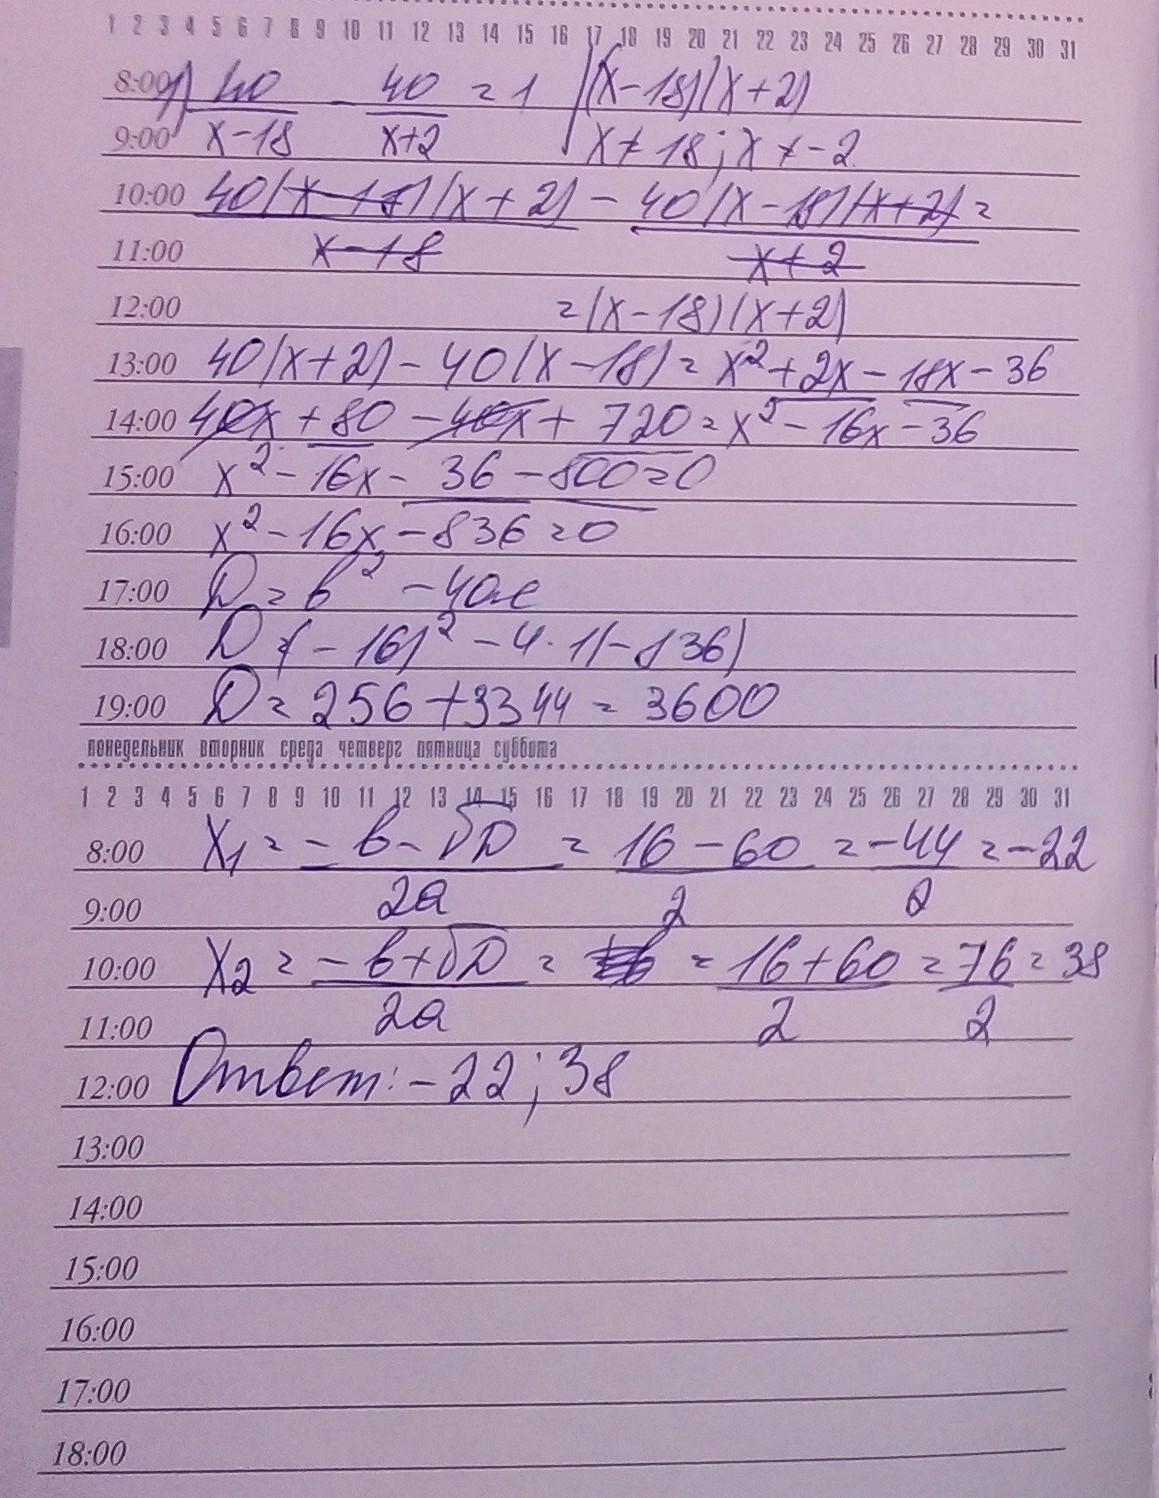 1 2 3 4 5 6 7 8 9 10 11 12 13 14 15 16 17 18 19 20 21 22 23 24 25 26 27 28 29 30 31
8:00 1) 40/(x-18) - 40/(x+2) = 1 | (x-18)(x+2)
9:00 x ≠ 18; x ≠ -2
10:00 40(x-18)(x+2)/(x-18) - 40(x-18)(x+2)/(x+2) =
11:00
12:00 =(x-18)(x+2)
13:00 40(x+2) - 40(x-18) = x²+2x-18x-36
14:00 40x + 80 - 40x + 720 = x² - 16x - 36
15:00 x² - 16x - 36 - 800 = 0
16:00 x² - 16x - 836 = 0
17:00 D = b² - 4ac
18:00 D = (-16)² - 4·1(-836)
19:00 D = 256 + 3344 = 3600
понедельник вторник среда четверг пятница суббота
1 2 3 4 5 6 7 8 9 10 11 12 13 14 15 16 17 18 19 20 21 22 23 24 25 26 27 28 29 30 31
8:00 x₁ = (-b-√D)/2a = (16-60)/2 = -44/2 = -22
9:00
10:00 x₂ = (-b+√D)/2a = = (16+60)/2 = 76/2 = 38
11:00
12:00 Ответ: -22; 38
13:00
14:00
15:00
16:00
17:00
18:00